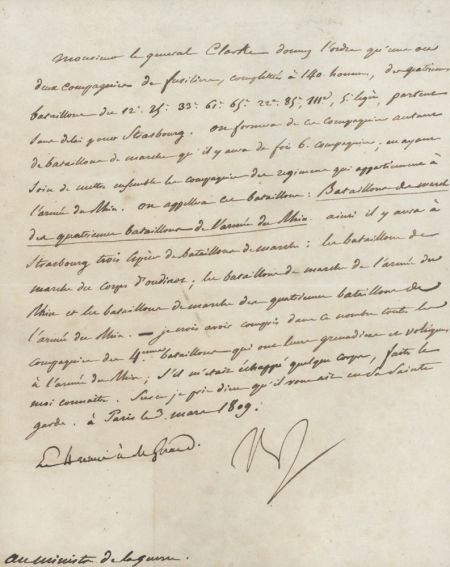 Monsieur le general Clarke donnez l'ordre qu'une ou
deux compagnies de fusiliers, completées à 140 hommes, des quatrièmes
bataillons des 12e. 25e. 33e. 61e. 65e. 22e. 85e. 111e. 5. légère, partent
sans délai pour Strasbourg. On formera de ces compagnies autant
de bataillons de marche qu'il y aura de fois 6. compagnies, en ayant
soin de mettre ensemble les compagnies des regimens qui appartiennent à
l'armée du Rhin. On appellera ces bataillons: Bataillons de marche
des quatrièmes bataillons de l'armée du Rhin. ainsi il y aura à
Strasbourg trois espèces de bataillons de marche: les bataillons de
marche du corps d'oudinot; les bataillons de marche de l'armée du
Rhin et les bataillons de marche des quatrièmes bataillons de
l'armée du Rhin. — je crois avoir compris dans ce nombre toutes les
compagnies des 4emes bataillons qui ont leurs grenadiers et voltigeurs
à l'armée du Rhin; S'il m'était échappé quelque corps, faites le
moi connaitre. Sur ce je prie dieu qu'il vous ait en Sa Sainte
garde. à Paris le 3. mars 1809.
au ministre de la guerre.